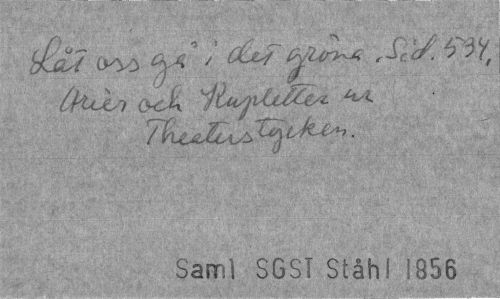 Låt oss gå i det gröna. Sid. 534,
Arier och Kupletter ur
Theaterstycken.
Saml SGST Ståhl 1856